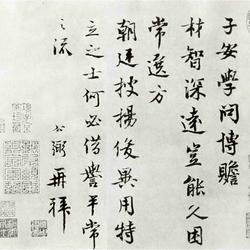 子安学問博贍
材智深遠豈能久困
常選方
朝廷搜揚俊異用特
立之士何必借誉平常
之流
公弼再拜